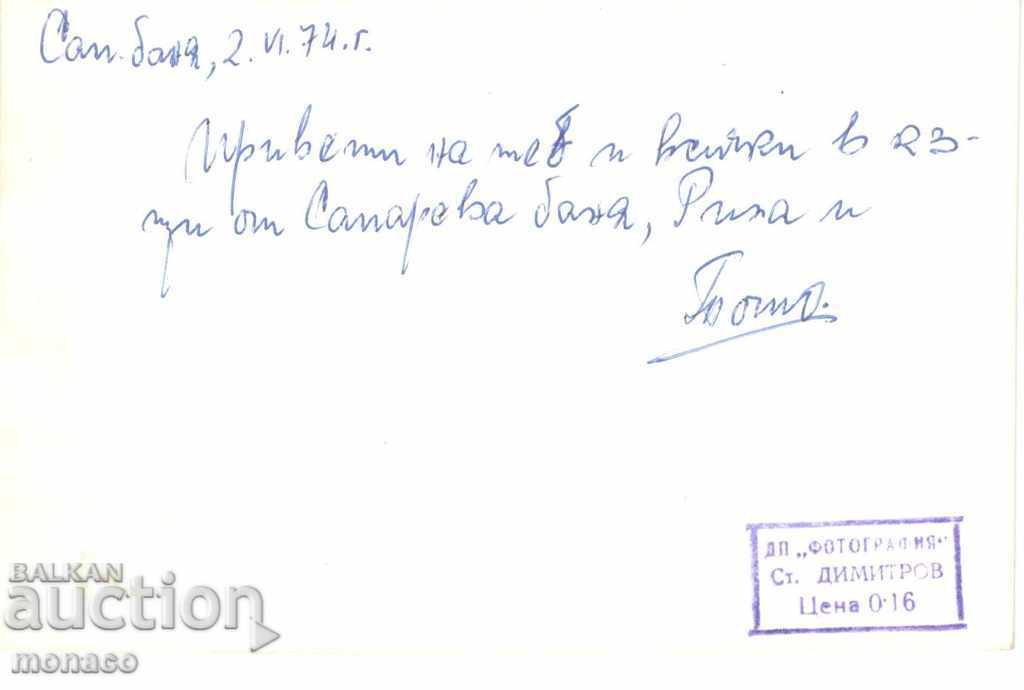 Сап. баня, 2.VI.74.г.
Привети на теб и всички в
от Сапарева баня, Рила и
ДП „ФОТОГРАФИЯ“
Ст. ДИМИТРОВ
Цена 0·16
BALKAN
auction
monaco